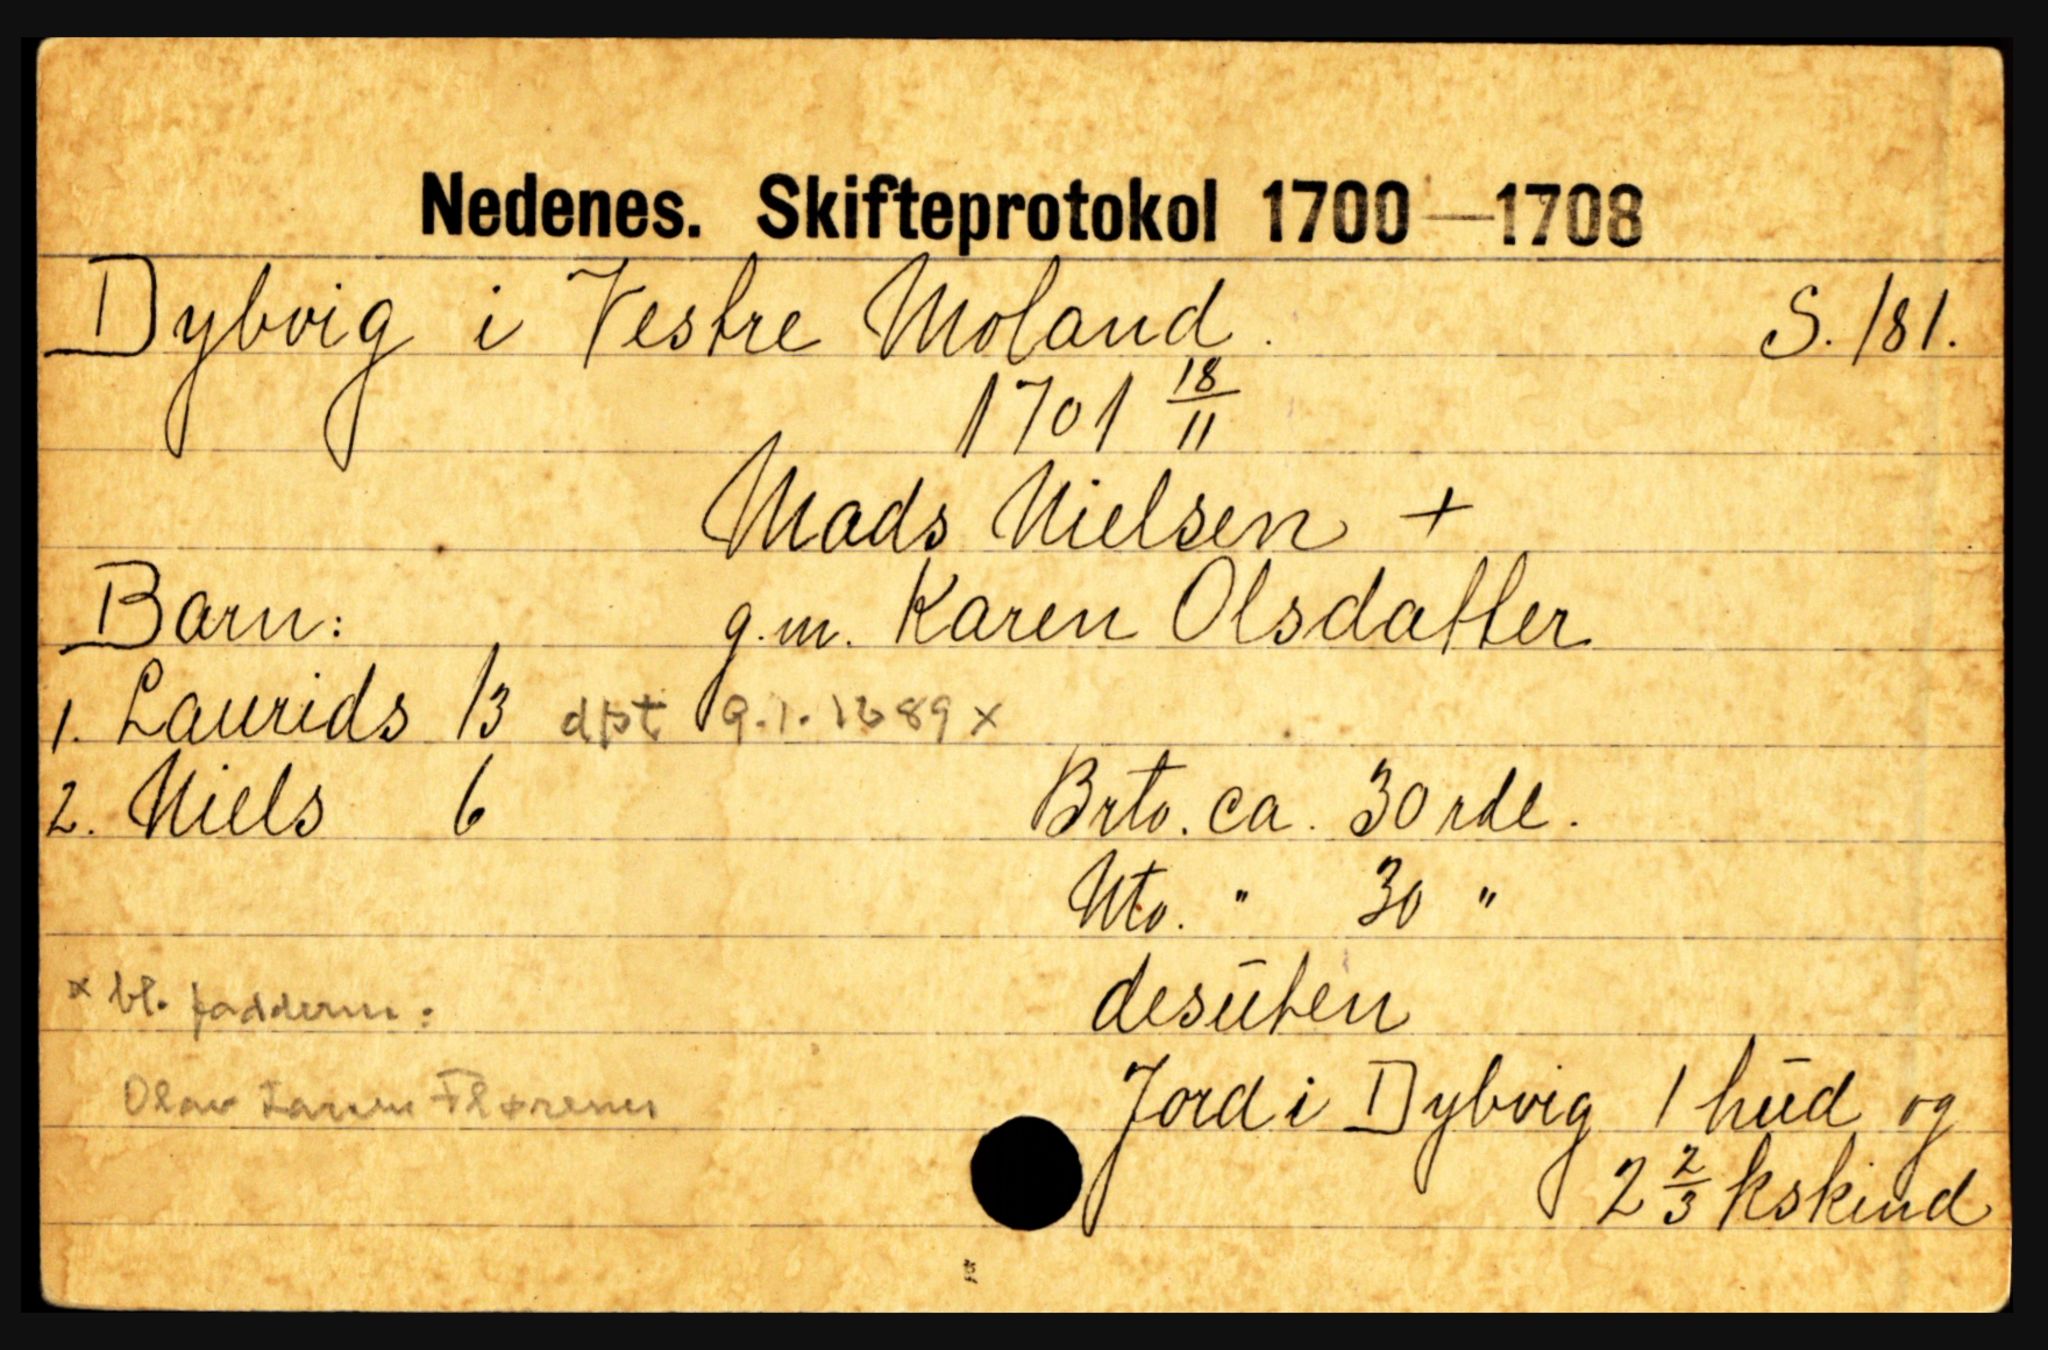 Nedenes. Skifteprotokol 1700—1708
Dybvig i Vestre Moland. S. 181.
1701 18/11
Mads Nielsen +
Barn: g.m. Karen Olsdatter
1. Laurids 13 dpt 9.1.1689 x
2. Niels 6 Brto. ca. 30 rdl.
Nto. " 30 "
desūten
x bl. fadderne:
Jord i Dybvig 1 hūd og
Olav Larsen
2 2/3 kskind